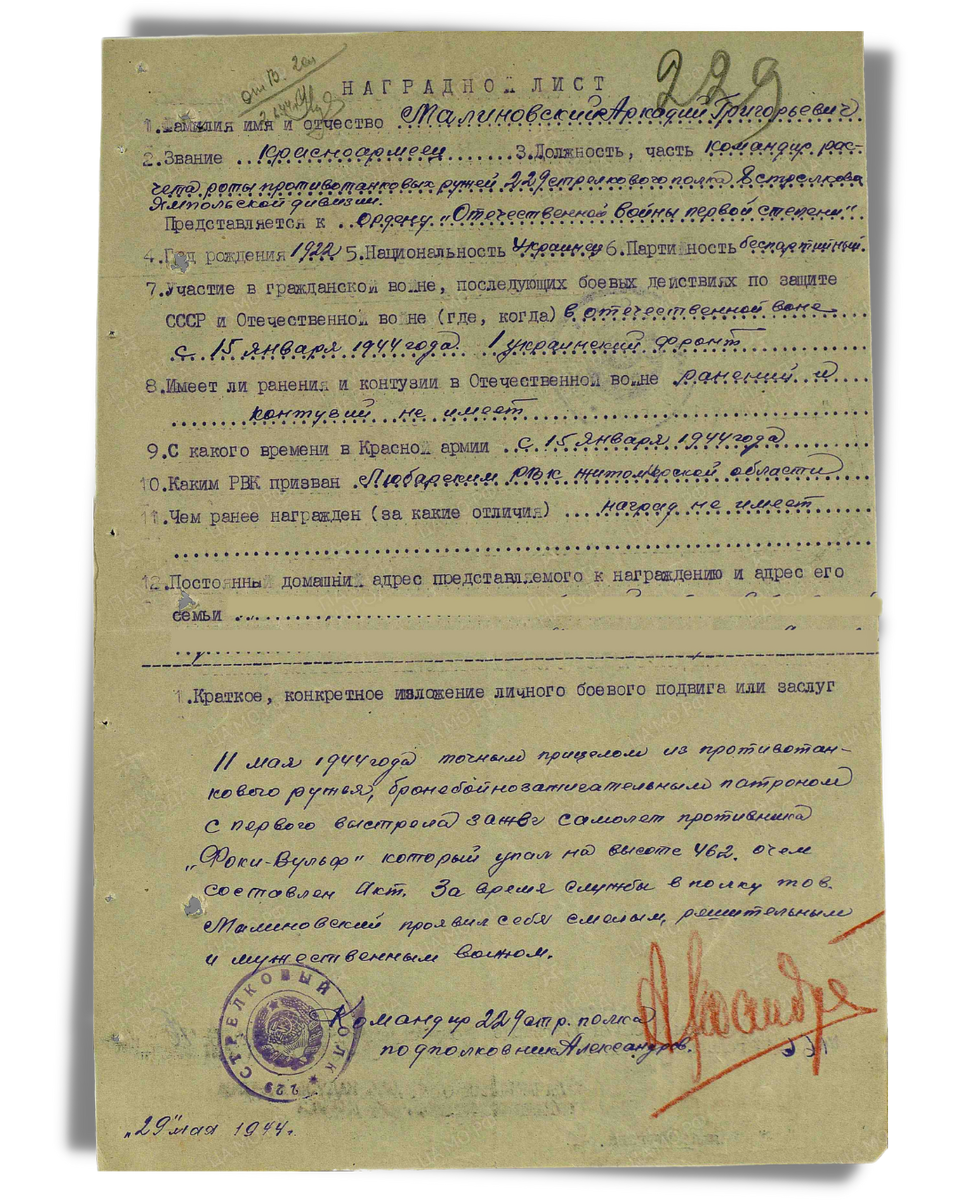 от В. 20
229
НАГРАДНОЙ ЛИСТ
1.Фамилия имя и отчество Малиновский Аркадий Григорьевич
2.Звание ..Красноармеец.......3.Должность, часть командир рас-
чета роты противотанковых ружей 229 стрелкового полка 8 стрелковой
Ямпольской дивизии.
Представляется к ..ордену „Отечественной войны первой степени"
4.Год рождения 1922 5.Национальность Украинец 6.Партийность беспартийный.
7.Участие в гражданской войне, последующих боевых действиях по защите
СССР и Отечественной войне (где, когда) в отечественной воне
с 15 января 1944 года 1 украинский фронт
8.Имеет ли ранения и контузии в Отечественной войне ранений и
контузий не имеет
9.С какого времени в Красной армии ..с 15 января 1944 года
10.Каким РВК призван .Любарским РВК житомирской области
11.Чем ранее награжден (за какие отличия) ...наград не имеет
12.Постоянный домашний адрес представляемого к награждению и адрес его
семьи
1.Краткое, конкретное изложение личного боевого подвига или заслуг
11 мая 1944 года точным прицелом из противотан-
кового ружья, бронебойнозажигательным патроном
с первого выстрела зажег самолет противника
„Фоки-Вульф" который упал на высоте 462. очем
составлен Акт. За время службы в полку тов.
Малиновский проявил себя смелым, решительным
и мужественным воином.
229 СТРЕЛКОВЫЙ ПОЛК
Командир 229 стр. полка
подполковник Александров.
„29" мая 1944 г.